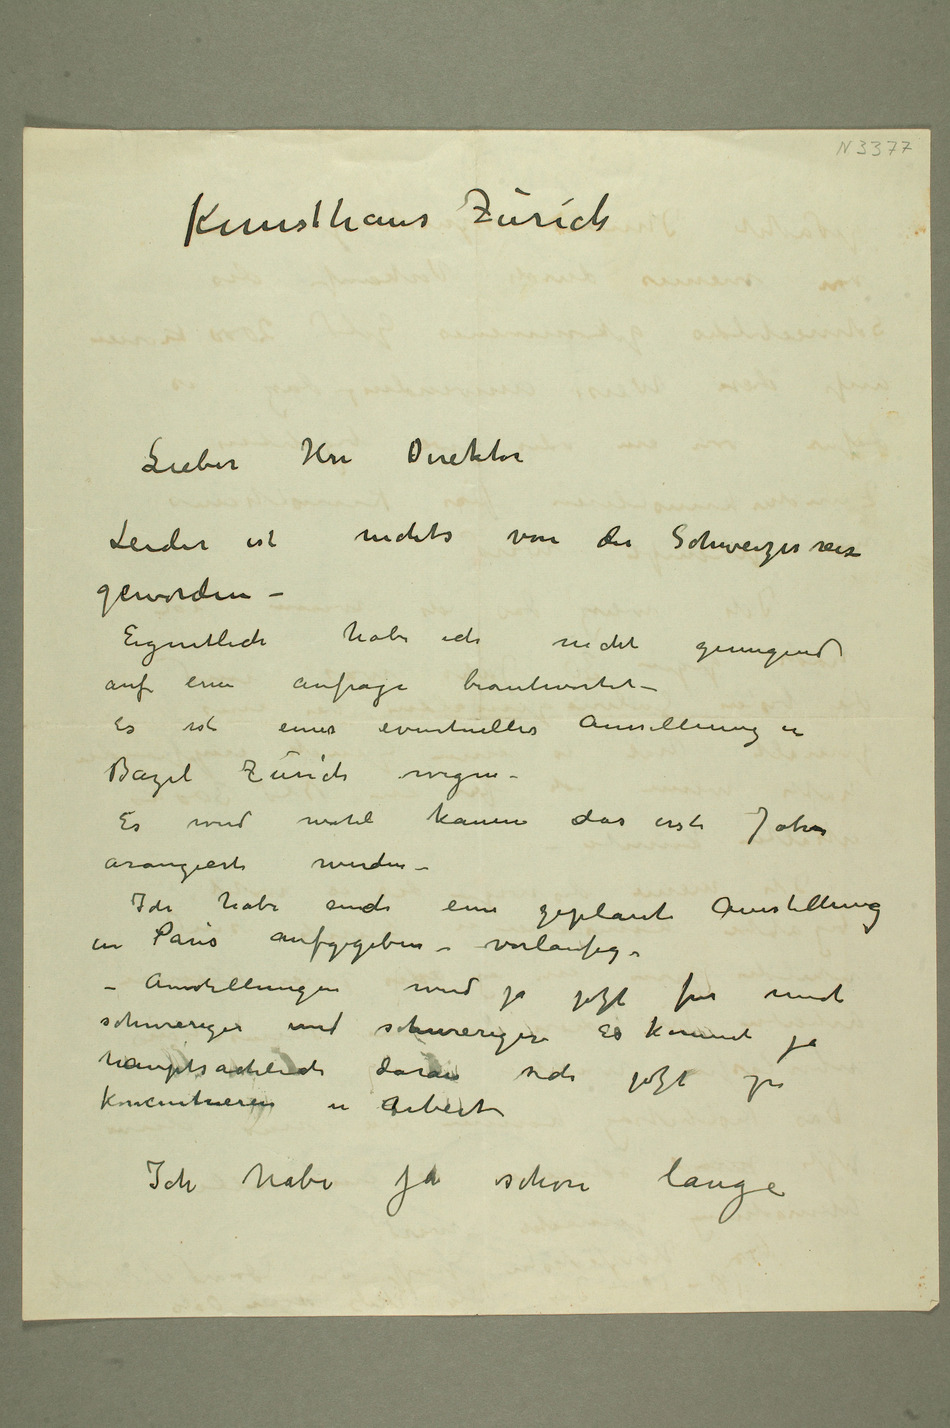 N 3377
Kunsthaus Zürich
Lieber Herr Direktor
Leider ist nichts von der Schweizerreise
geworden –
Eigentlich habe ich nicht genügend
auf eine Anfrage beantwortet –
Es ist einer eventuelles Ausstellung in
Bazel Zürich wegen –
Es wird wohl kaum das erste Jahr
arangiert werden –
Ich habe auch eine geplante Ausstellung
in Paris aufgegeben – vorläufig –
– Ausstellungen wird ja jetzt für mich
schwieriger und schwieriger Es kommt ja
hauptsächlich daran sich jetzt zu
koncentrieren in Arbeit –
Ich habe ja schon lange